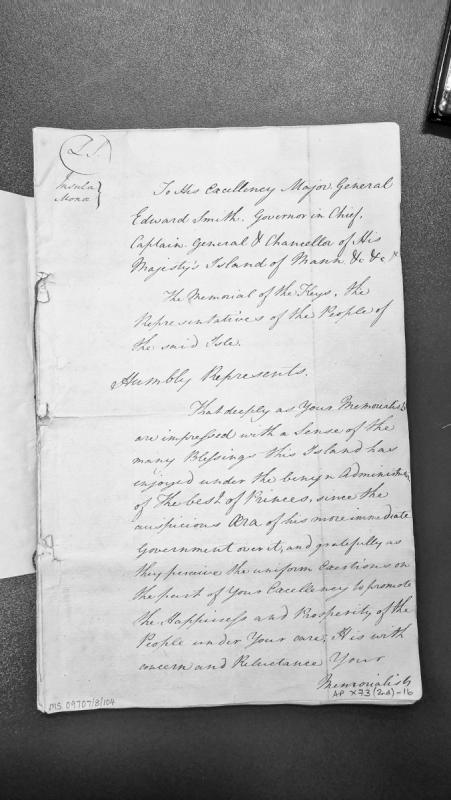 L.S.
Insula
Mona
To His Excellency Major General
Edward Smith. Governor in Chief,
Captain General & Chancellor of His
Majesty's Island of Mann &c &c
The Memorial of the Keys, the
Representatives of the People of
the said Isle.
Humbly Represents.
That deeply as Your Memorialists
are impressed with a Sense of the
many Blessings this Island has
enjoyed under the benign Administra
of The best of Princes, since the
auspicious Æra of his more immediate
Government over it, and gratefully as
they perceive the uniform Exertions on
the part of Your Excellency to promote
the Happiness and Prosperity of the
People under Your care; It is with
concern and Reluctance Your
Memorialists
MS 09707/8/104
AP X73(2d)-16